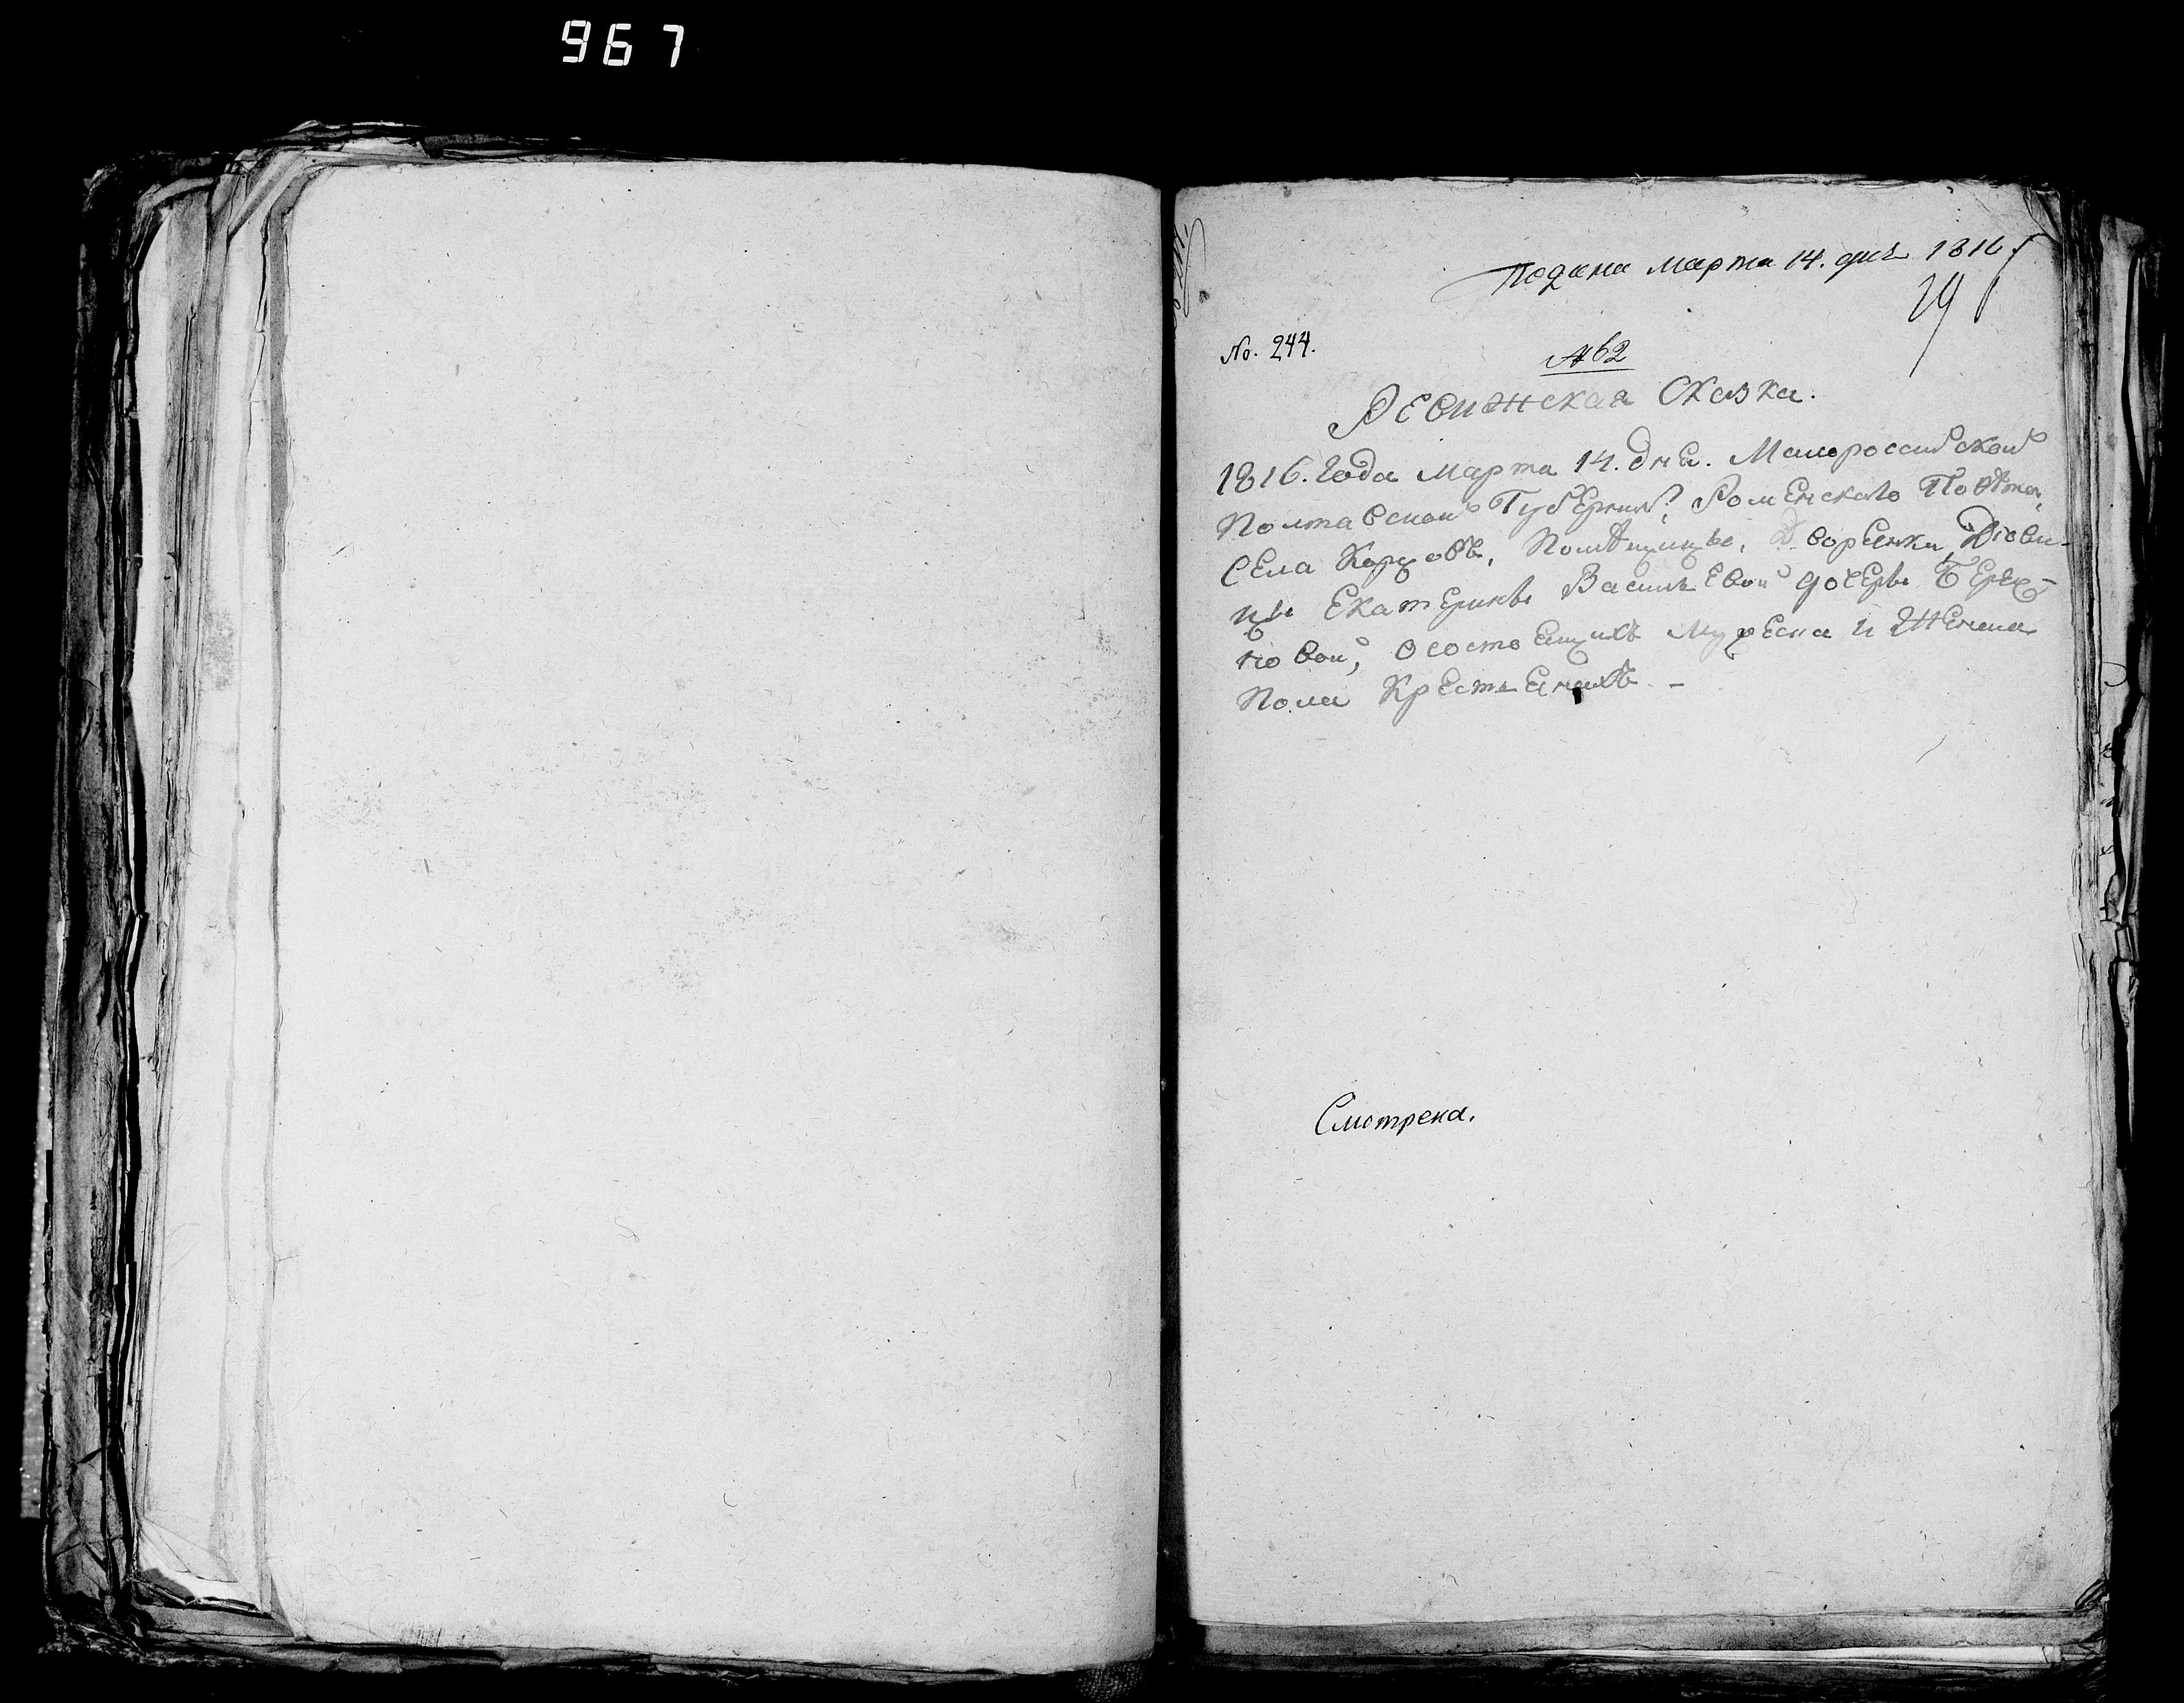 967
Подана марта 14. дня 1816 г
No. 244.
№62
Ревижская Сказка.
1816. года марта 14. дня. Малороссийской
Полтавской Губернии, Роменского Повѣта,
Села Коржовъ, Помѣщицы, Дворянки, Дѣви-
цы Екатерины Васильевой дочери
новой, о состоящихъ мужеска и женска
Пола Крестьянахъ –
Смотрена.